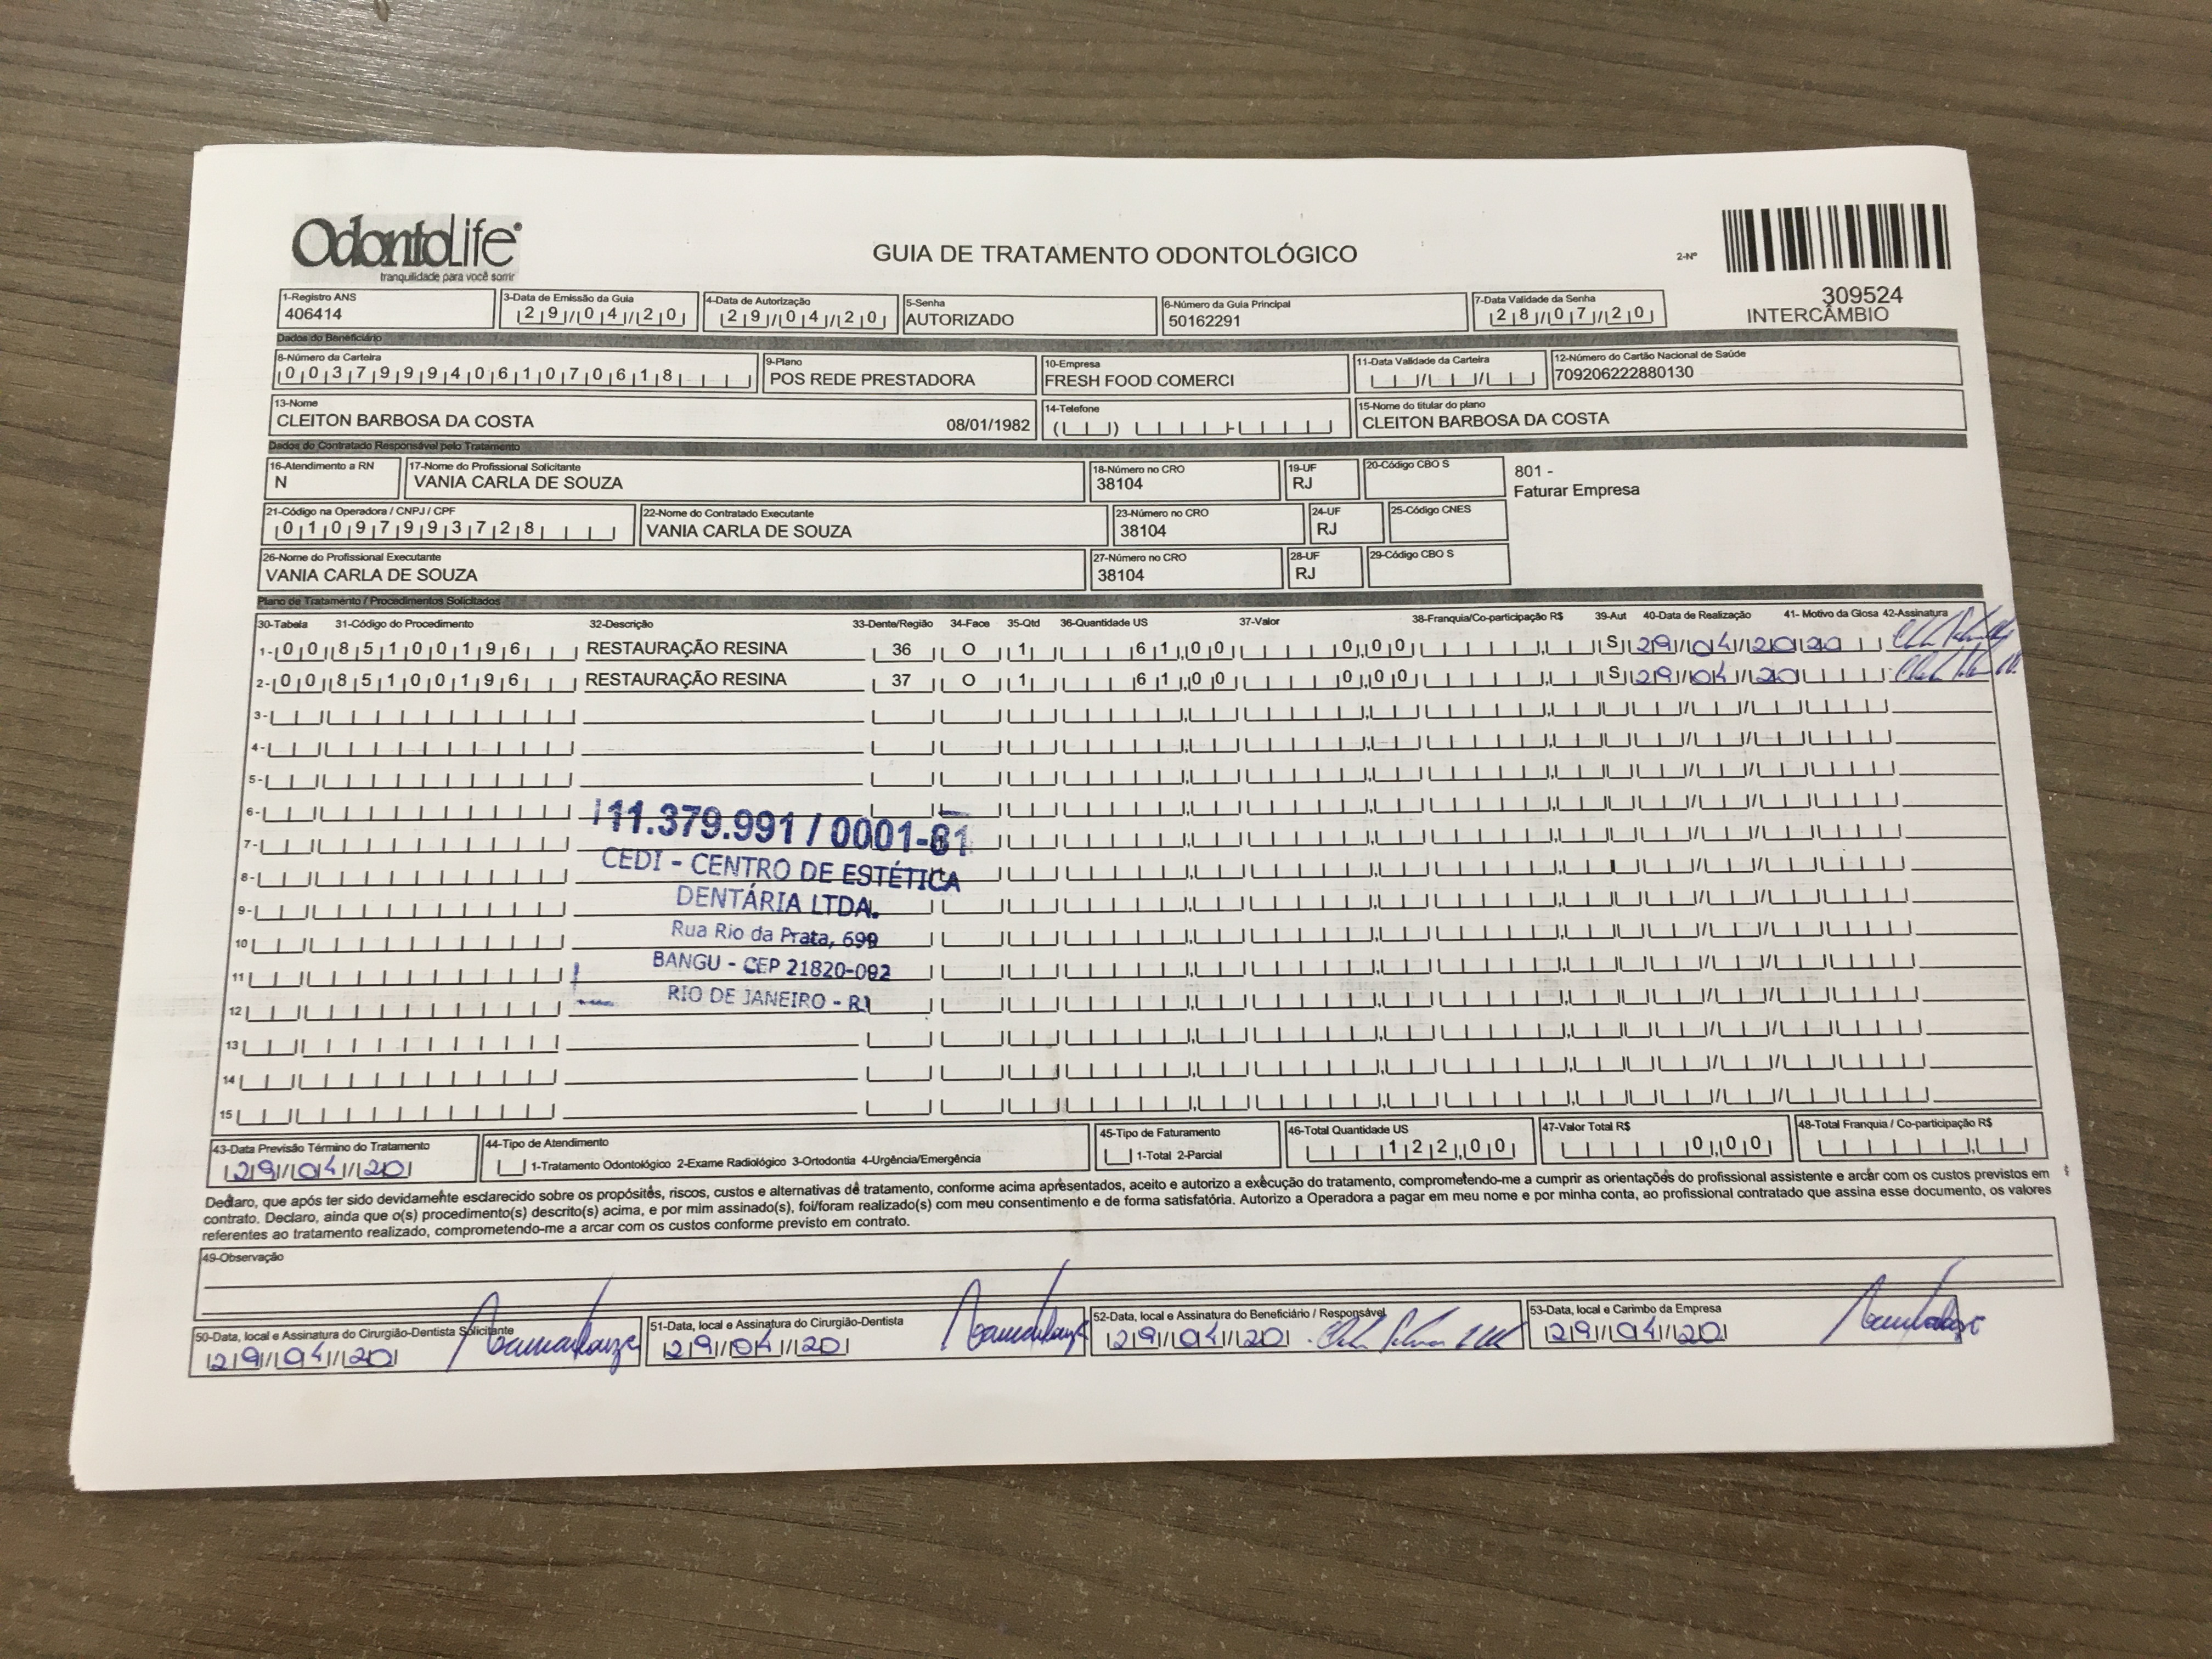 OdontoLife®
tranquilidade para você sorrir
GUIA DE TRATAMENTO ODONTOLÓGICO
2-Nº
309524
INTERCÂMBIO
1-Registro ANS
406414
3-Data de Emissão da Guia
29/04/20
4-Data de Autorização
29/04/20
5-Senha
AUTORIZADO
6-Número da Guia Principal
50162291
7-Data Validade da Senha
28/07/20
Dados do Beneficiário
8-Número da Carteira
00379994061070618
9-Plano
POS REDE PRESTADORA
10-Empresa
FRESH FOOD COMERCI
11-Data Validade da Carteira
12-Número do Cartão Nacional de Saúde
709206222880130
13-Nome
CLEITON BARBOSA DA COSTA 08/01/1982
14-Telefone
15-Nome do titular do plano
CLEITON BARBOSA DA COSTA
Dados do Contratado Responsável pelo Tratamento
16-Atendimento a RN
N
17-Nome do Profissional Solicitante
VANIA CARLA DE SOUZA
18-Número no CRO
38104
19-UF
RJ
20-Código CBO S
801 -
Faturar Empresa
21-Código na Operadora / CNPJ / CPF
01097993728
22-Nome do Contratado Executante
VANIA CARLA DE SOUZA
23-Número no CRO
38104
24-UF
RJ
25-Código CNES
26-Nome do Profissional Executante
VANIA CARLA DE SOUZA
27-Número no CRO
38104
28-UF
RJ
29-Código CBO S
Plano de Tratamento / Procedimentos Solicitados
30-Tabela 31-Código do Procedimento 32-Descrição 33-Dente/Região 34-Face 35-Qtd 36-Quantidade US 37-Valor 38-Franquia/Co-participação R$ 39-Aut 40-Data de Realização 41- Motivo da Glosa 42-Assinatura
1- 00 85100196 RESTAURAÇÃO RESINA 36 O 1 61,00 0,00 S 29/04/2020
2- 00 85100196 RESTAURAÇÃO RESINA 37 O 1 61,00 0,00 S 29/04/20
3-
4-
5-
6-
7-
8-
9-
10
11
12
13
14
15
11.379.991 / 0001-81
CEDI - CENTRO DE ESTÉTICA
DENTÁRIA LTDA.
Rua Rio da Prata, 699
BANGU - CEP 21820-092
RIO DE JANEIRO - RJ
43-Data Previsão Término do Tratamento
29/04/20
44-Tipo de Atendimento
1-Tratamento Odontológico 2-Exame Radiológico 3-Ortodontia 4-Urgência/Emergência
45-Tipo de Faturamento
1-Total 2-Parcial
46-Total Quantidade US
122,00
47-Valor Total R$
0,00
48-Total Franquia / Co-participação R$
Declaro, que após ter sido devidamente esclarecido sobre os propósitos, riscos, custos e alternativas de tratamento, conforme acima apresentados, aceito e autorizo a execução do tratamento, comprometendo-me a cumprir as orientações do profissional assistente e arcar com os custos previstos em
contrato. Declaro, ainda que o(s) procedimento(s) descrito(s) acima, e por mim assinado(s), foi/foram realizado(s) com meu consentimento e de forma satisfatória. Autorizo a Operadora a pagar em meu nome e por minha conta, ao profissional contratado que assina esse documento, os valores
referentes ao tratamento realizado, comprometendo-me a arcar com os custos conforme previsto em contrato.
49-Observação
50-Data, local e Assinatura do Cirurgião-Dentista Solicitante
29/04/20
51-Data, local e Assinatura do Cirurgião-Dentista
29/04/20
52-Data, local e Assinatura do Beneficiário / Responsável
29/04/20
53-Data, local e Carimbo da Empresa
29/04/20